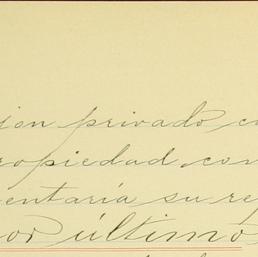 ion privado co
ropiedad, con
entaría su re
or último